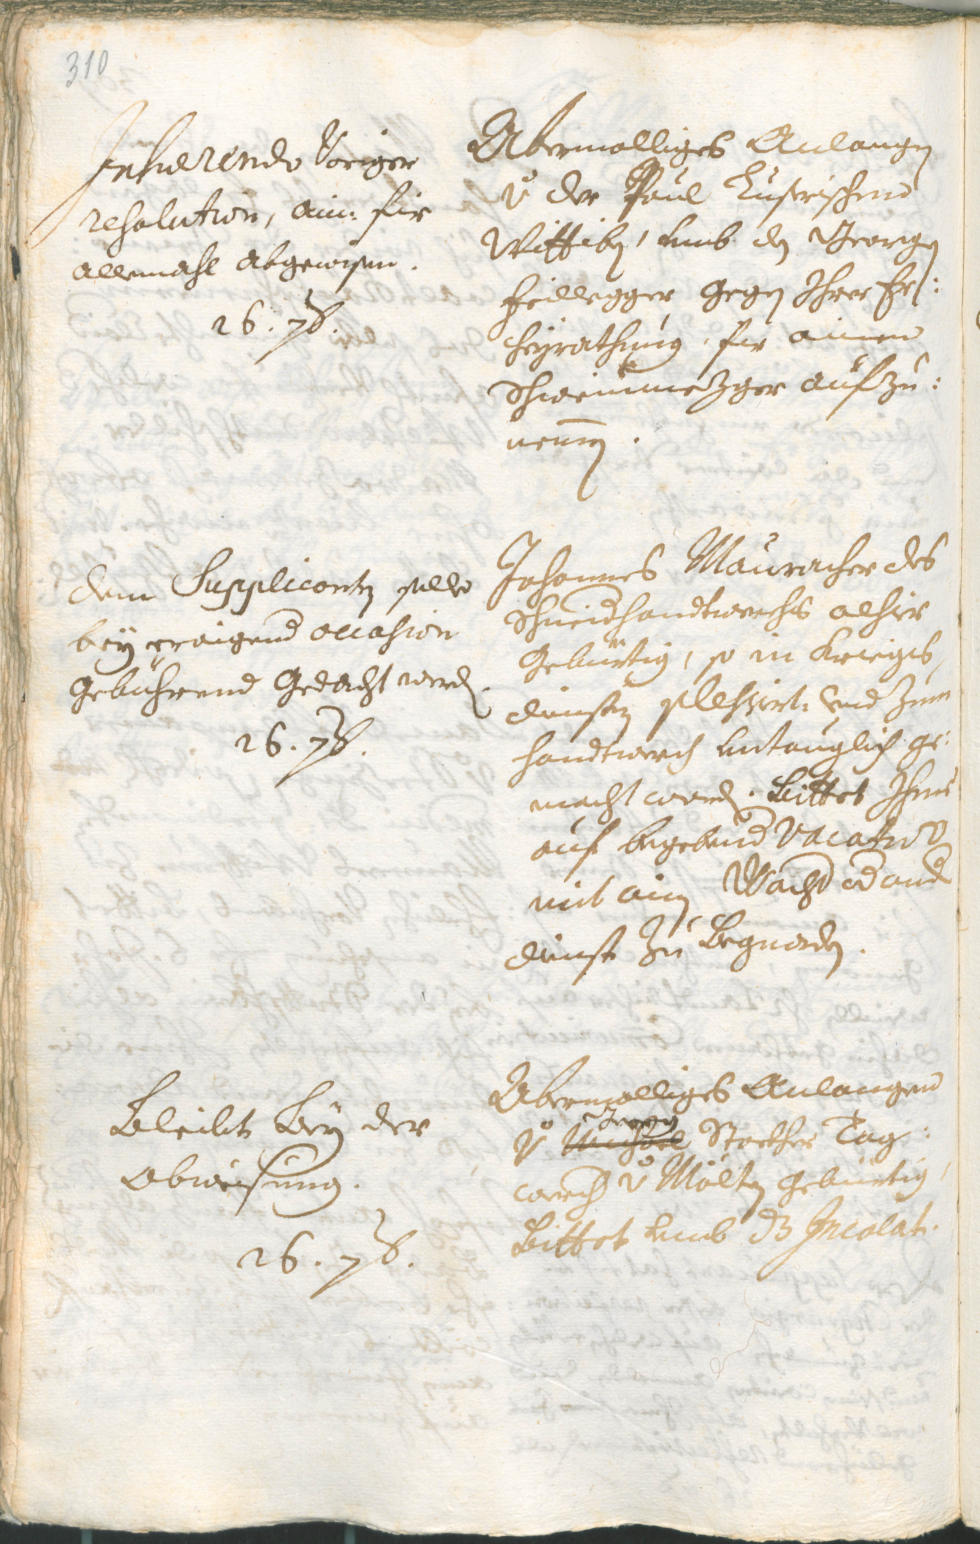 310
Inhærendo Voriger
resolution, ain: fir
allemahl abgewisen.
26. 7b.
Abermalliges Anlangen
v der Paul
Wittiben, umb den Georgen
Feillegger gegen Ihrer Er:
heyrathung, fir ainen
Schweinmezger aufzu:
nemen.
dem Supplicanten solle
bey eraigend occasion
gebührend gedacht werden.
26. 7b.
Johannes Mauracher des
Schneidhandtwerchs alhier
gebürtig, so in Kriegs
diensten plessirt und zum
handtwerch untauglich ge:
macht worden. Bittet Ihne
auf begebend vacatur
mit ain Wacht od and
dienst zu Begnaden.
Bleibt Bey der
Abweisung.
26. 7b.
Abermalliges Anlangen
v Michael Georg Tag:
werch v Mölten gebürtig,
Bittet umb dz Incolat.